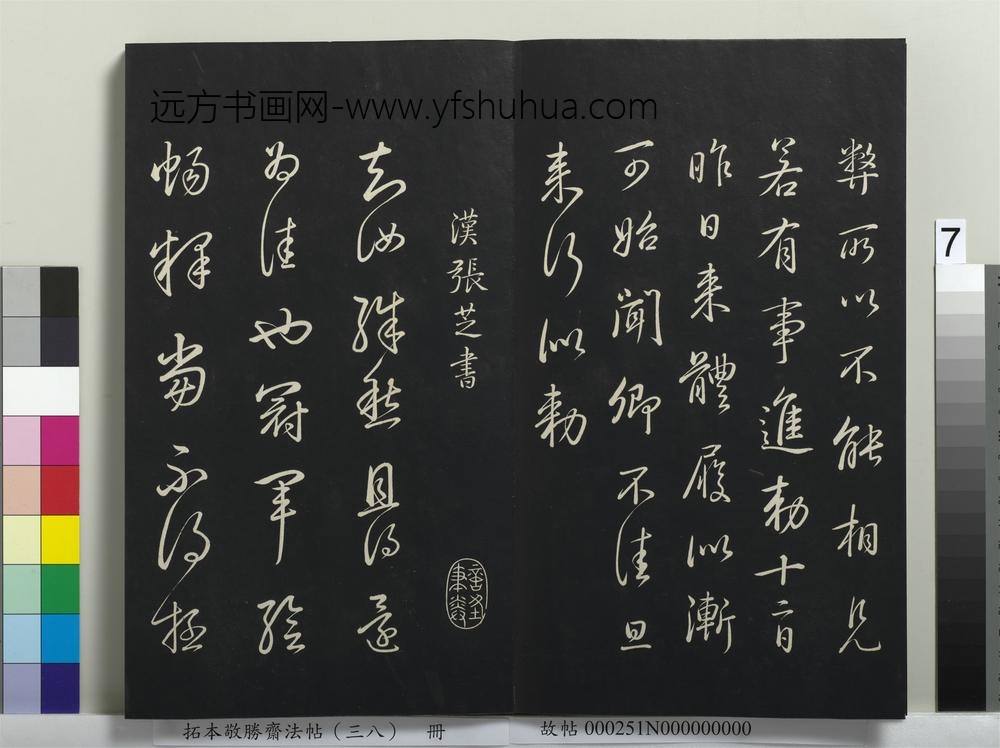 远方书画网-www.yfshuhua.com
弊所以不能相見
若有事進勑十二日
昨日来體履似漸
可始聞卿不佳旦
来行似勑
漢張芝書
知汝殊愁且得還
為佳也冠軍暫
暢釋當不得極
7
拓本敬勝齋法帖(三八) 冊
故帖 000251N000000000